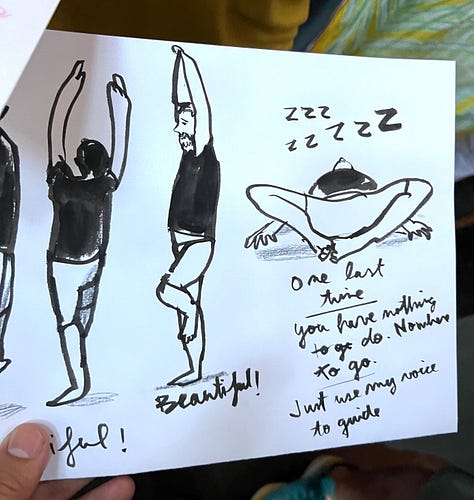 zzz
zz zzz
One last
time
you have nothing
to do. Nowhere
to go.
Just use my voice
to guide
Beautiful!
iful!